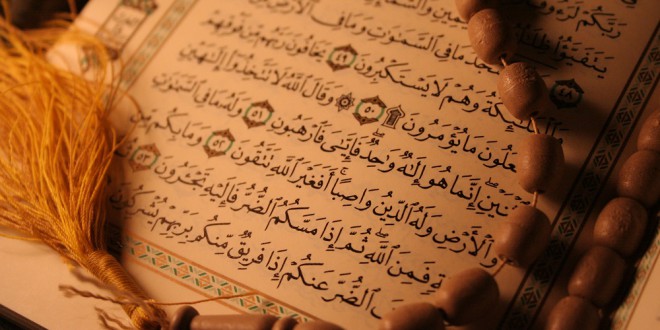 يَسْجُدُ مَا فِي السَّمَٰوَٰتِ وَمَا فِي الْأَرْضِ
وَالْمَلَٰٓئِكَةُ وَهُمْ لَا يَسْتَكْبِرُونَ ٤٩ يَخَافُونَ رَبَّهُم مِّن فَوْقِهِمْ
يَفْعَلُونَ مَا يُؤْمَرُونَ ۩ ٥٠ ۞ وَقَالَ اللَّهُ لَا تَتَّخِذُوٓا۟ إِلَٰهَيْنِ
اثْنَيْنِ إِنَّمَا هُوَ إِلَٰهٌ وَٰحِدٌ فَإِيَّٰيَ فَارْهَبُونِ ٥١ وَلَهُۥ مَا فِي السَّمَٰوَٰتِ
وَالْأَرْضِ وَلَهُ الدِّينُ وَاصِبًا أَفَغَيْرَ اللَّهِ تَتَّقُونَ ٥٢ وَمَا بِكُم مِّن
فَمِنَ اللَّهِ ثُمَّ إِذَا مَسَّكُمُ الضُّرُّ فَإِلَيْهِ تَجْـَٔرُونَ ٥٣
الضُّرَّ عَنكُمْ إِذَا فَرِيقٌ مِّنكُم بِرَبِّهِمْ يُشْرِكُونَ